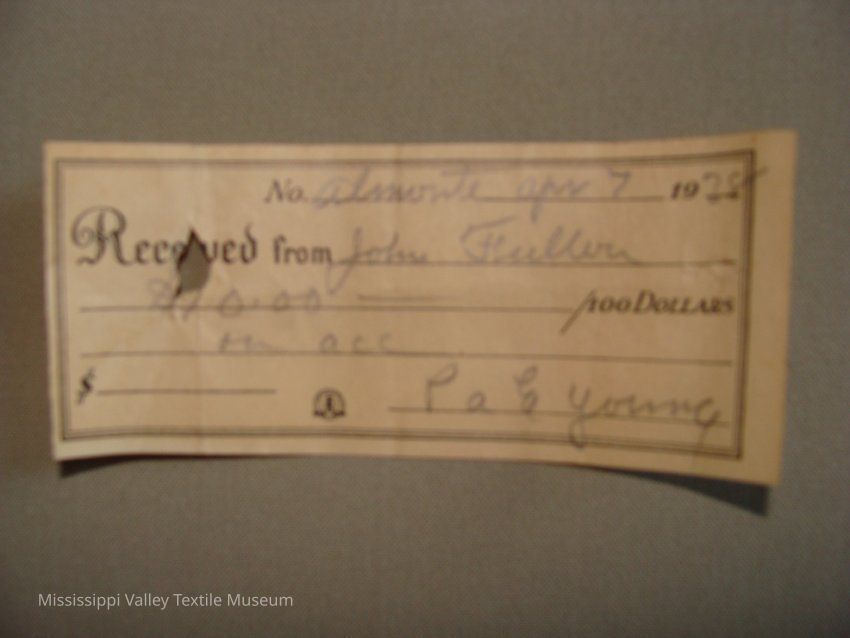 No. Almonte apr 7 1928
Received from John Fuller
$10.00 /100 DOLLARS
on acc
$ P a E Young
Mississippi Valley Textile Museum